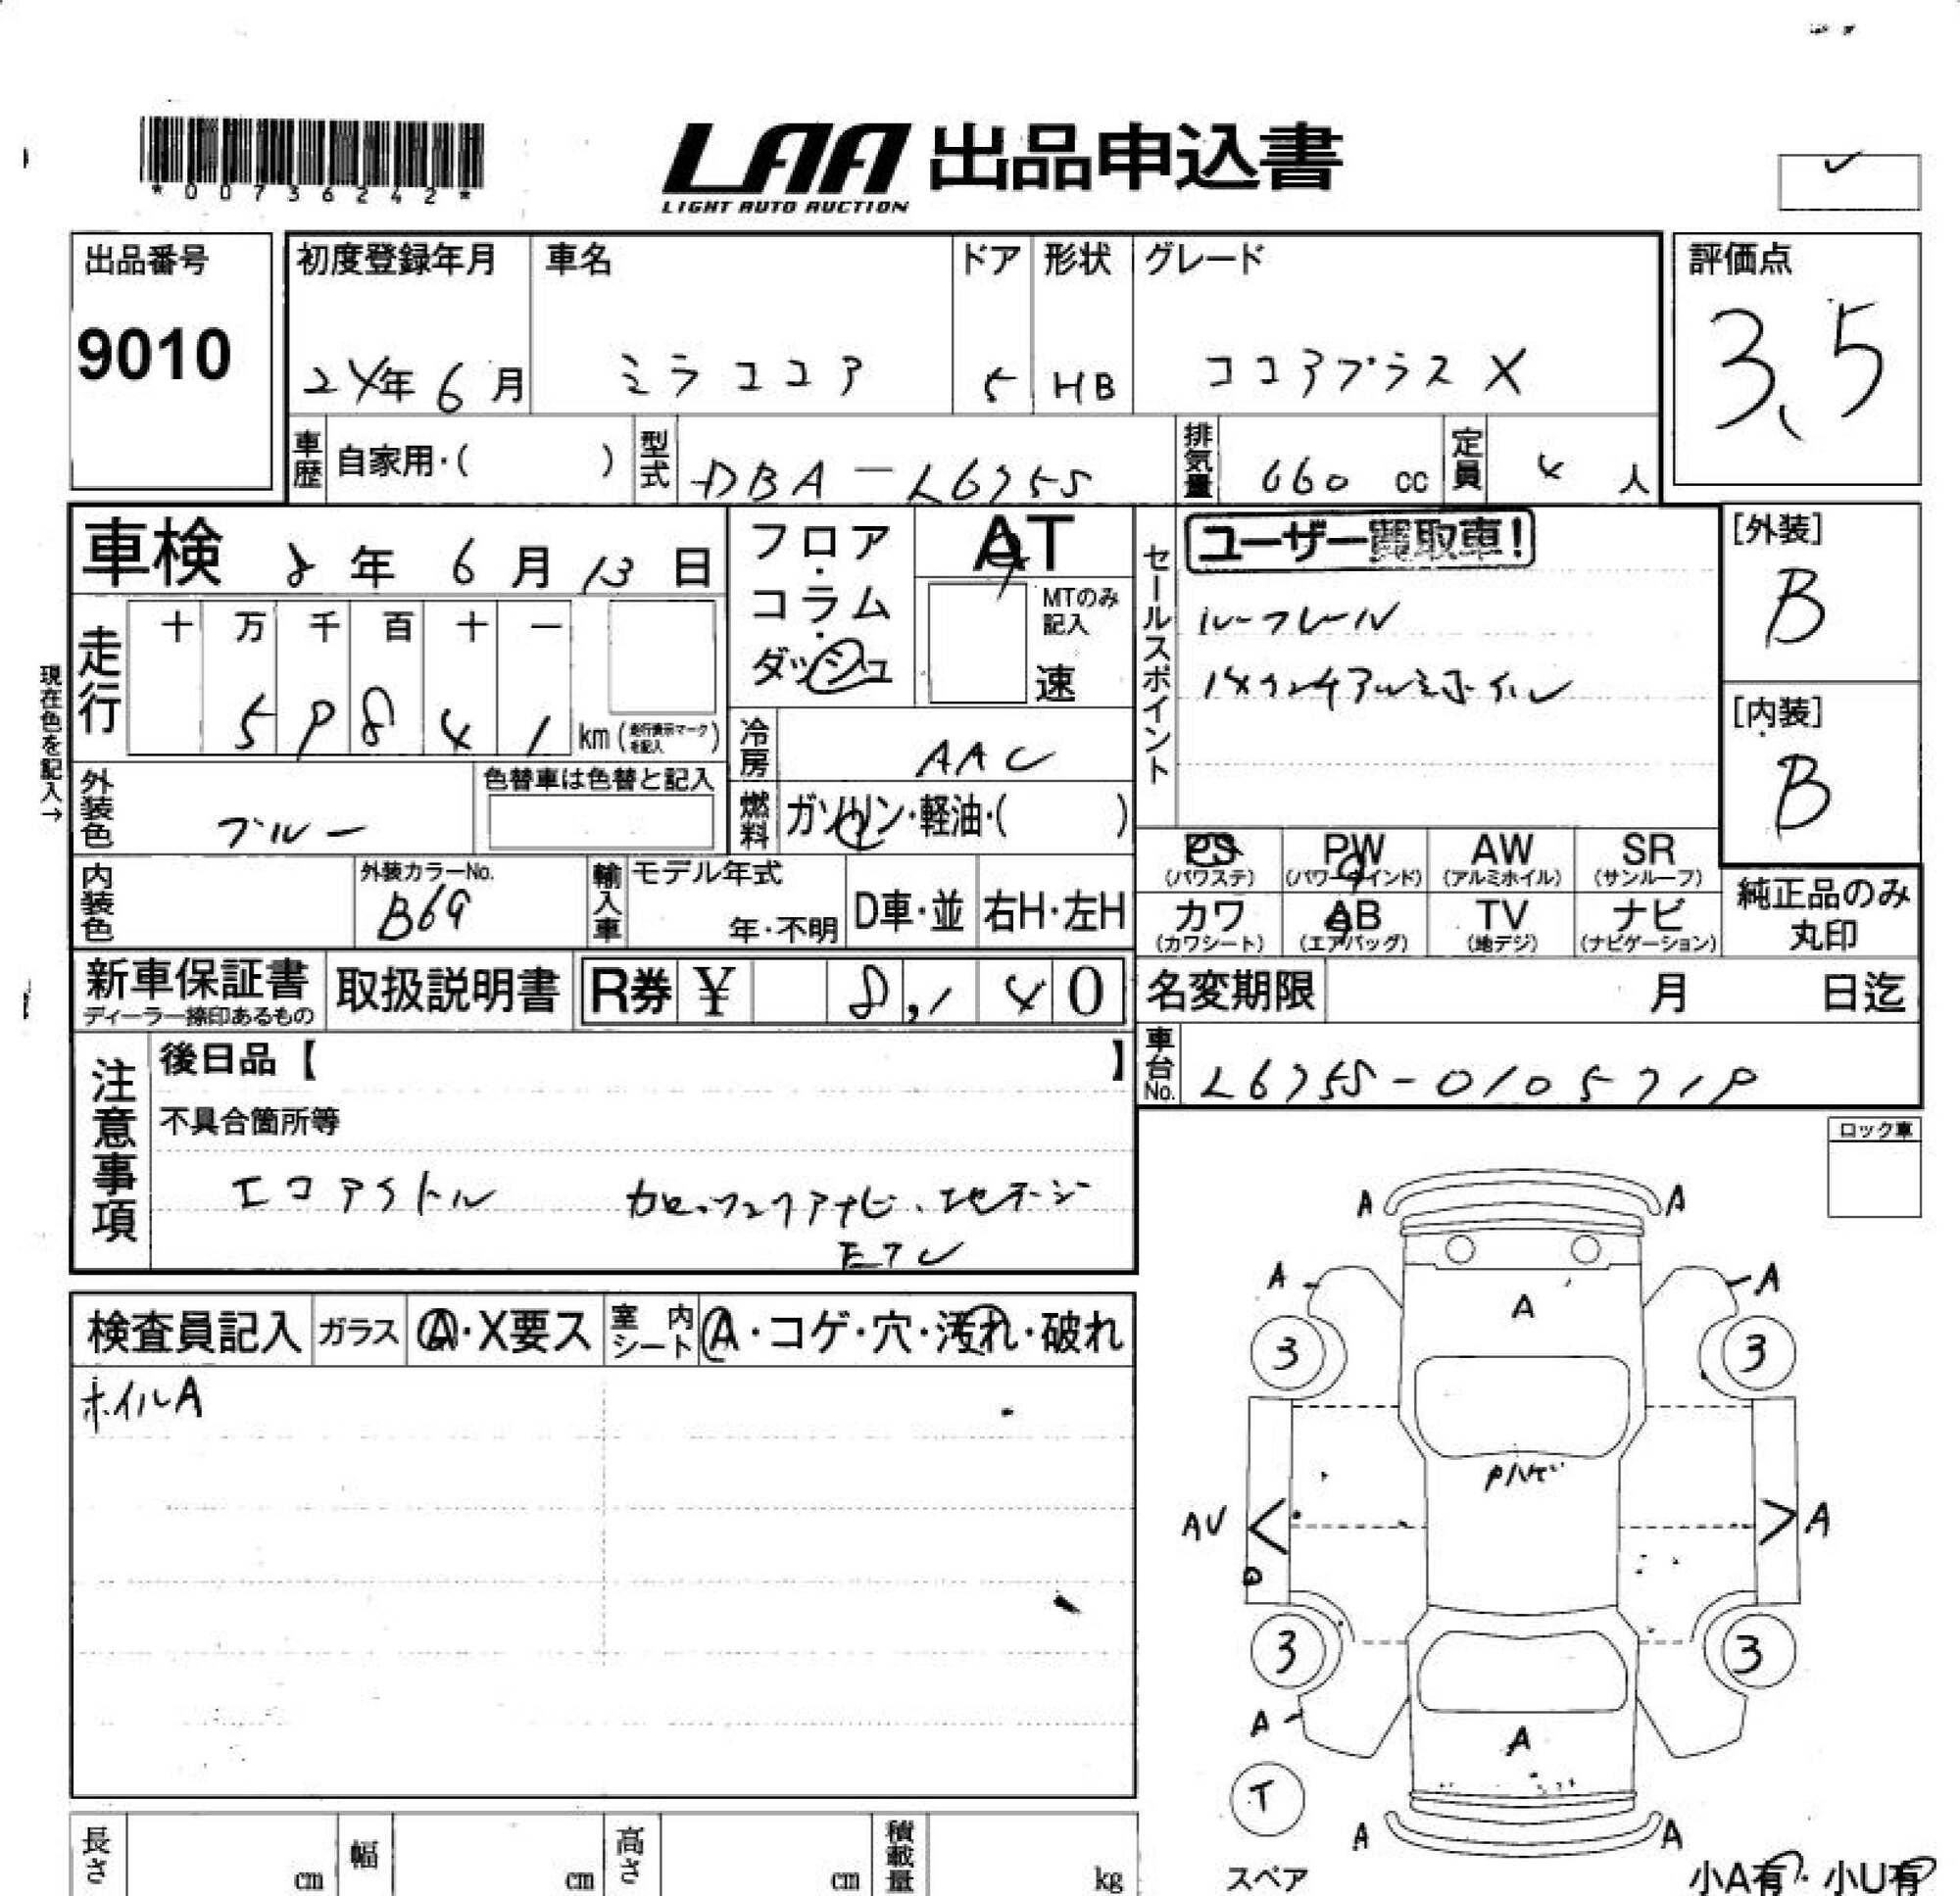 *00736242*
LAA 出品申込書
LIGHT AUTO AUCTION
出品番号
9010
初度登録年月
24年6月
車名
ミラココア
ドア
5
形状
HB
グレード
ココアプラスX
評価点
3.5
車歴 自家用・( )
型式 DBA-L675S
排気量 660 cc
定員 4人
車検 8年6月13日
フロア・コラム・ダッシュ
AT
MTのみ記入
速
セールスポイント
ユーザー買取車!
ルーフレール
14インチアルミホイル
[外装]
B
[内装]
B
現在色を記入→
走行
十 万 千 百 十 一
5 9 8 4 1 km (走行表示マークを記入)
冷房 AAC
外装色 ブルー
色替車は色替と記入
燃料 ガソリン・軽油・( )
内装色
外装カラーNo.
B69
輸入車
モデル年式
年・不明
D車・並
右H・左H
PS (パワステ)
PW (パワーウインド)
AW (アルミホイル)
SR (サンルーフ)
カワ (カワシート)
AB (エアバッグ)
TV (地デジ)
ナビ (ナビゲーション)
純正品のみ
丸印
新車保証書
ディーラー捺印あるもの
取扱説明書
R券 ¥ 8,140
名変期限 月 日迄
車台No. L675S-0105719
注意事項
後日品【 】
不具合箇所等
エコアイドル
ETC
ロック車
検査員記入
ガラス A・X要ス
室内シート A・コゲ・穴・汚れ・破れ
ホイルA
A A
A A
A
3 3
Pハゲ
AU A
3 3
A
A
T
スペア
A A
小A有・小U有
長さ cm
幅 cm
高さ cm
積載量 kg